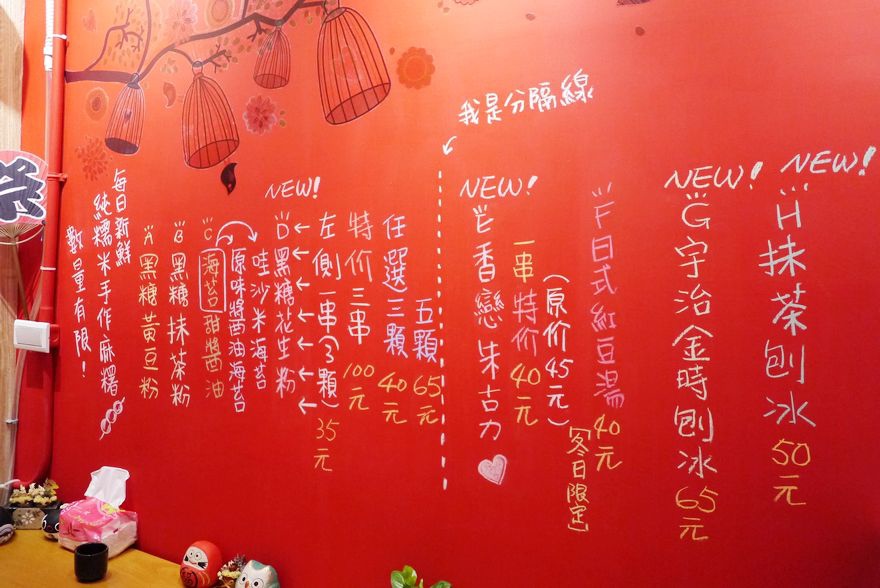 每日新鮮
純糯米手作麻糬
數量有限！
A 黑糖黃豆粉
B 黑糖抹茶粉
C 海苔甜醬油
原味醬油海苔
哇沙米海苔
NEW!
D 黑糖花生粉
左側一串(3顆) 35元
特价三串 100元
任選三顆 40元
五顆 65元
我是分隔線
NEW!
E 香戀朱古力
一串特价 40元
(原价45元)
F 日式紅豆湯 40元
[冬日限定]
NEW!
G 宇治金時刨冰 65元
NEW!
H 抹茶刨冰 50元
祭